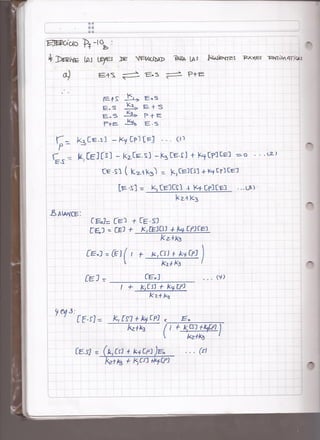 EJERCICIO P7-10B :
DERIVE LAS LEYES DE VELOCIDAD PARA LAS SIGUIENTES RXNES ENZIMATICAS
a) E+S ⇌ E·S ⇌ P+E
∴
E+S K1→ E·S
E·S K2→ E+S
E·S K3→ P+E
P+E K4→ E·S
rp = K3[E·S] - K4[P][E] ... (1)
rE·S = K1[E][S] - K2[E·S] - K3[E·S] + K4[P][E] = 0 ... (2)
[E·S](K2+K3) = K1[E][S] + K4[P][E]
[E·S] = K1[E][S] + K4[P][E] ...(3)
K2+K3
BALANCE:
[E0] = [E] + [E·S]
[E0] = [E] + K1[E][S] + K4[P][E]
K2+K3
[E0] = [E] ( 1 + K1[S] + K4[P] )
K2+K3
[E] = [E0] ... (4)
1 + K1[S] + K4[P]
K2+K3
4 en 3:
[E·S] = K1[S] + K4[P] × E0
K2+K3 ( 1 + K1[S]+K4[P] )
K2+K3
[E·S] = (K1[S] + K4[P])E0 ... (5)
K2+K3 + K1[S] + K4[P]